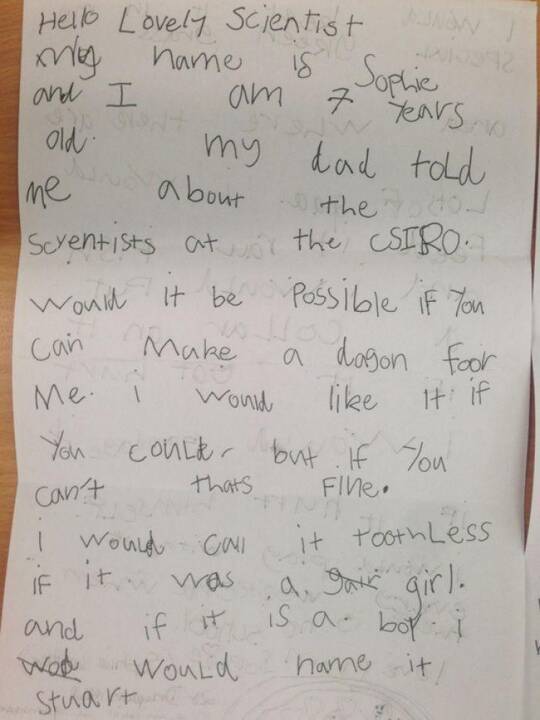 Hello Lovely Scientist
my name is Sophie
and I am 7 years
old. my dad told
me about the
scyentists at the CSIRO.
would it be possible if you
can make a dagon foor
me. i would like it if
you could but if you
can't thats fine.
i would call it toothless
if it was a girl.
and if it is a boy i
would name it
stuart